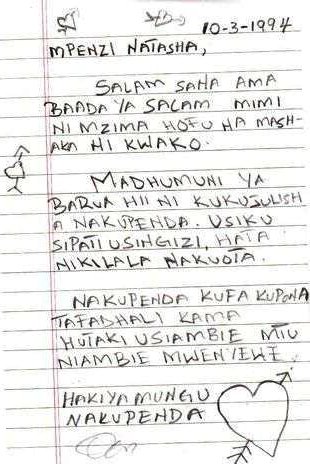 10-3-1994
MPENZI NATASHA,
SALAM SANA AMA
BAADA YA SALAM MIMI
NI MZIMA HOFU NA MASH-
AKA NI KWAKO.
MADHUMUNI YA
BARUA HII NI KUKUJULISH
A NAKUPENDA. USIKU
SIPATI USINGIZI, HATA
NIKILALA NAKUOTA.
NAKUPENDA KUFA KUPONA
TAFADHALI KAMA
HUTAKI USIAMBIE MTU
NIAMBIE MWENYEWE.
HAKIYAMUNGU
NAKUPENDA